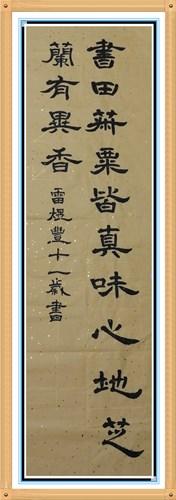 書田菽粟皆真味心地芝
蘭有異香
雷極豐十一歲書